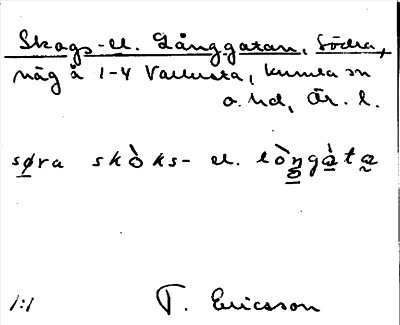 Skogs- el. Långgatan, Södra,
väg å 1-4 Vallersta, Kumla sn
o. hd, Ör. l.
søra skòks- el. lòŋgàta
1:1 T. Ericsson